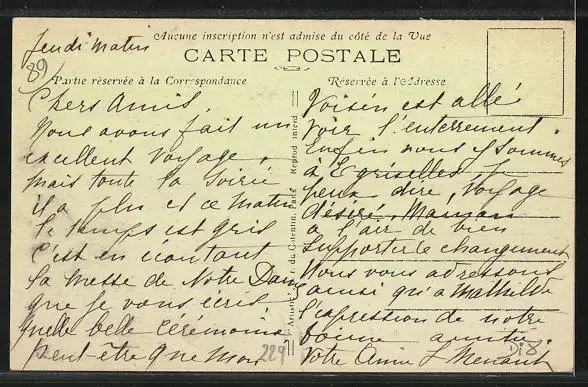 Aucune inscription n'est admise du côté de la Vue
CARTE POSTALE
Partie réservée à la Correspondance
Réservée à l'Adresse
Jeudi matin
89
Chers Amis,
Nous avons fait un
excellent voyage,
mais toute la soirée
il a plu et ce matin
le temps est gris
C'est en écoutant
la messe de Notre Dame
que je vous écris
quelle belle cérémonie
peut-être que Mon
Voisin est allé
voir l'enterrement.
Enfin nous y sommes
à Egriselles je
peux dire, voyage
désiré. Maman
a l'air de bien
supporter le changement
Nous vous adressons
ainsi qu'à Mathilde
l'expression de notre
bonne amitié.
Votre Amie
229
Reprod. interd.